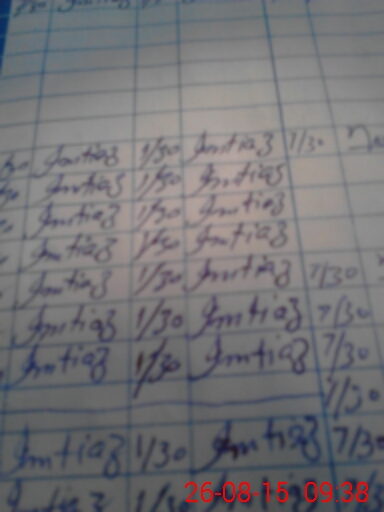 Imtiaz 1/30 Imtiaz 7/30
Imtiaz 1/30 Imtiaz
Imtiaz 1/30 Imtiaz
Imtiaz 1/30 Imtiaz
Imtiaz 1/30 Imtiaz 7/30
Imtiaz 1/30 Imtiaz 7/30
Imtiaz 1/30 Imtiaz 7/30
7/30
Imtiaz 1/30 Imtiaz 7/30
Imtiaz
26-08-15 09.38